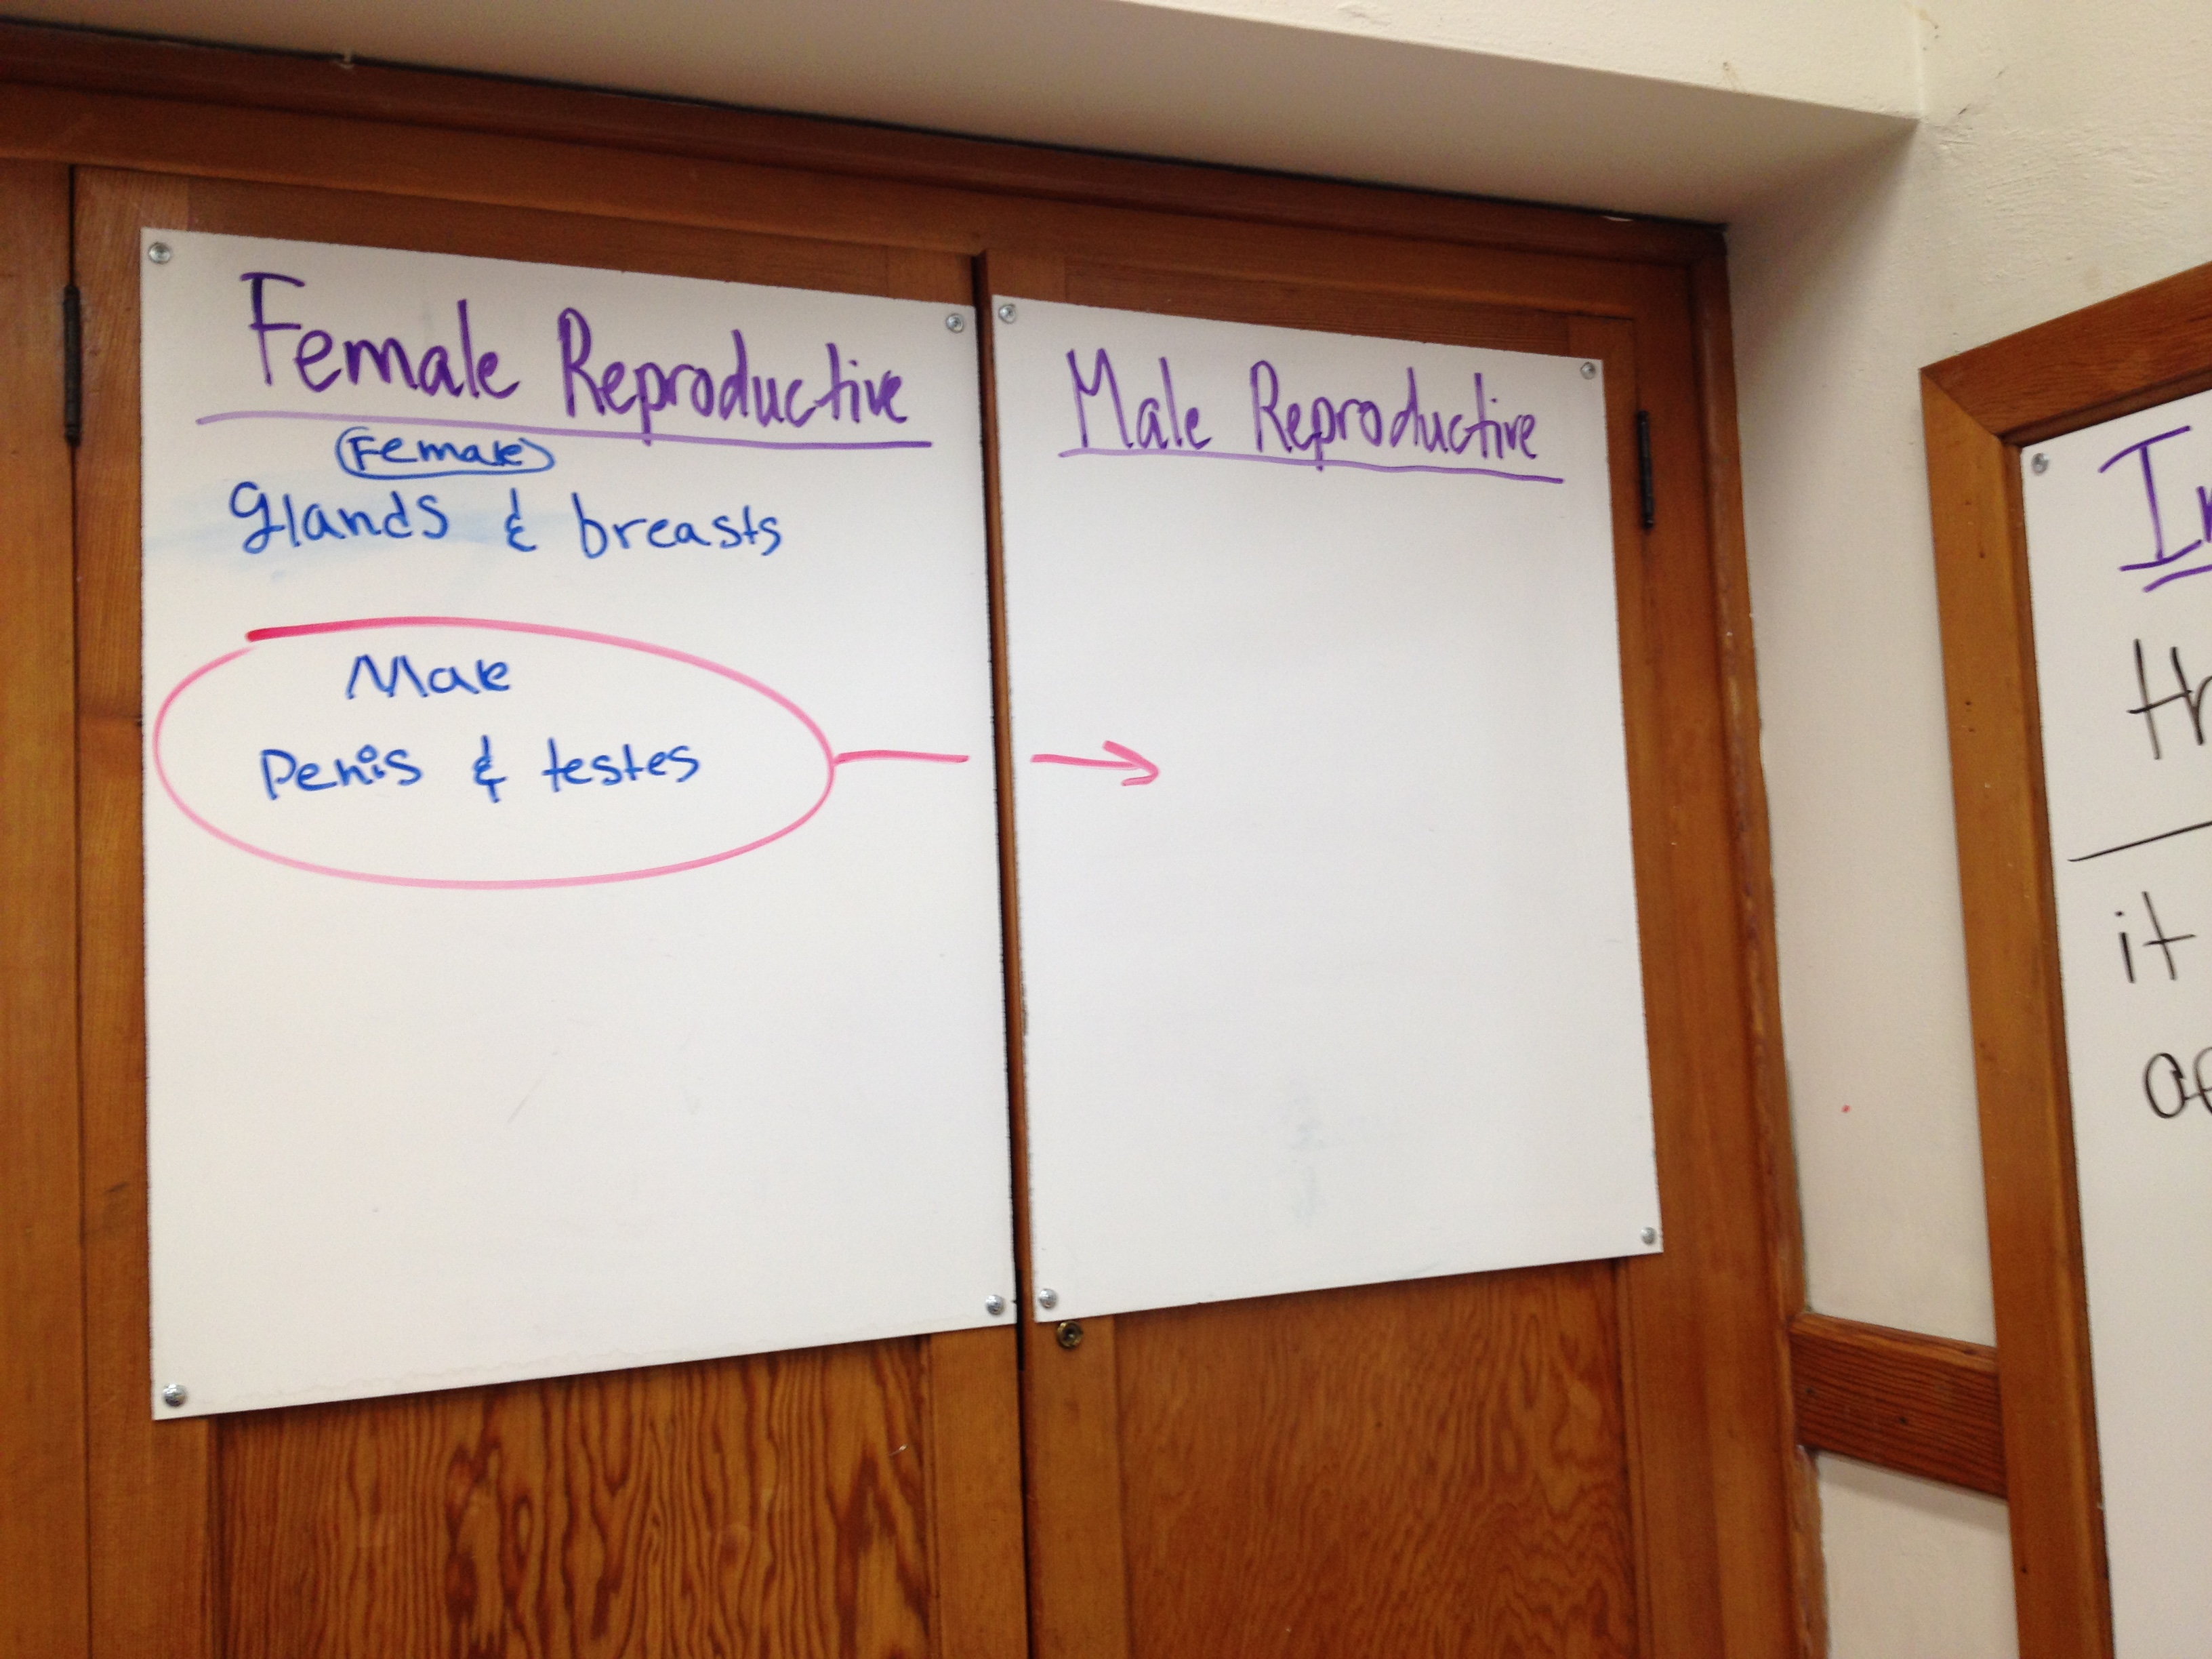 Female Reproductive
Female
Glands & breasts
Male
Penis & testes
Male Reproductive
it